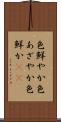 色鮮やか色
あざやか色
鮮か